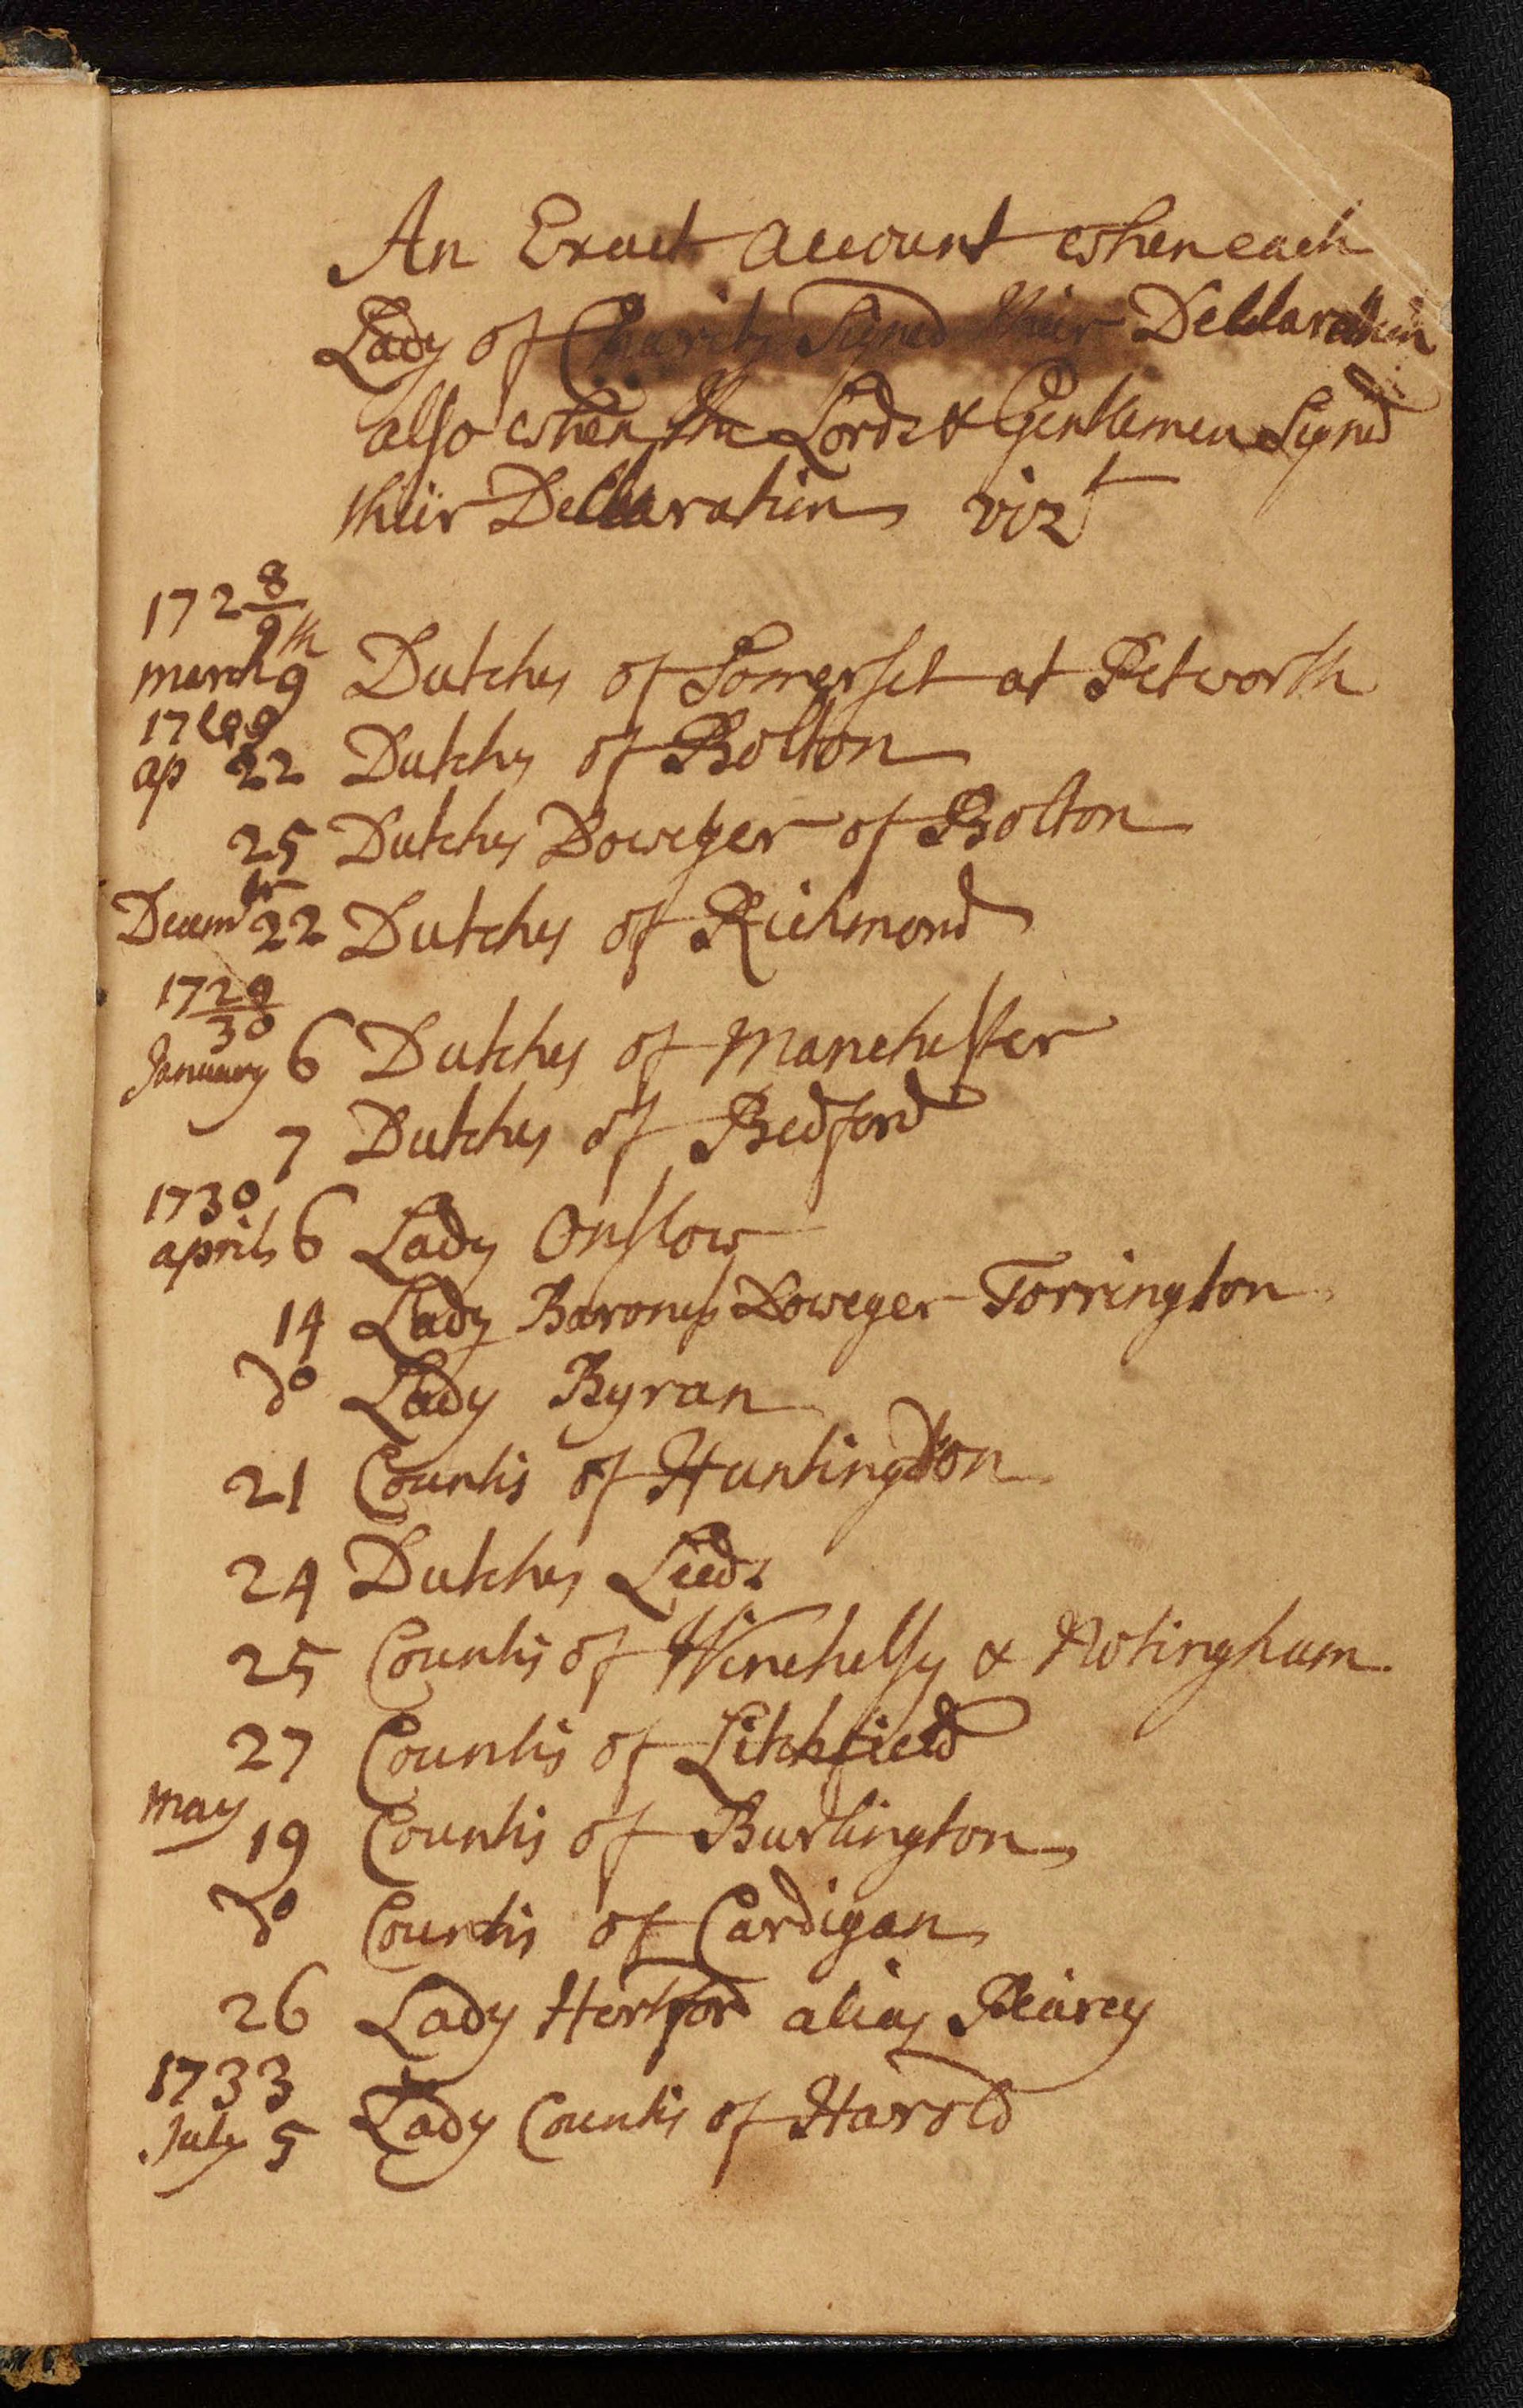 An Exact account when each
Lady of Charity Signed their Decclaration
also when the Lords & Gentlemen Signd
their Decclaration vizt
172 8/9
March 9th Dutches of Somerset at Petworth
ap 22 Dutches of Bolton
25 Dutches Doweger of Bolton
Decembr 22 Dutches of Richmond
1729/30
January 6 Dutches of Manchester
7 Dutches of Bedford
1730
april 6 Lady Onslow
14 Lady Baroness Doweger Torrington
do Lady Byran
21 Countis of Huntingdon
24 Dutches Leeds
25 Countis of Winchelsy & Notingham
27 Countis of Litchfield
May 19 Countis of Burlington
do Countis of Cardigan
26 Lady Hertford alias Peircy
1733
July 5 Lady Countis of Harold